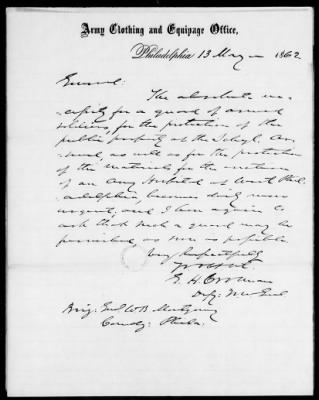 Army Clothing and Equipage Office,
Philadelphia 13 May 1862
General:
The absolute ne-
cessity for a guard of armed
soldiers for the protection of the
public property at the Schuyl. Ar-
senal, as well as for the protection
of the materials for the erection
of an Army Hospital at West Phil-
adelphia, becomes daily more
urgent; and I have again to
ask that such a guard may be
furnished, as soon as possible.
Very Respectfully
G. H. Crosman
Brig: Genl W. R. Montgomery
Comdg: Phila.